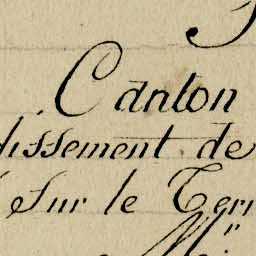 Canton
dissement de
sur le Terr
Mr